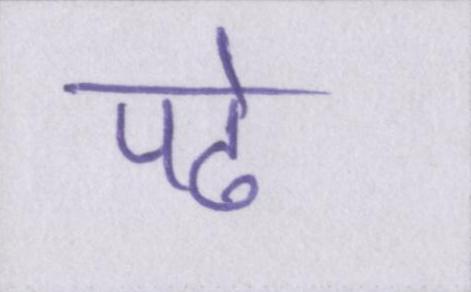 पढे